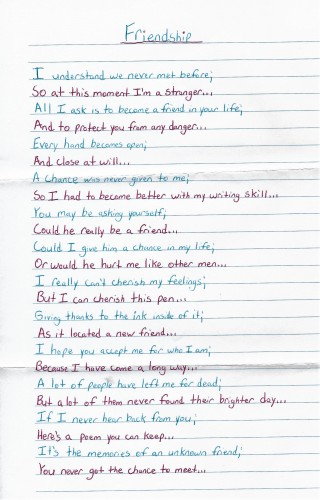 Friendship
I understand we never met before;
So at this moment I'm a stranger...
All I ask is to become a friend in your life;
And to protect you from any danger...
Every hand becomes open;
And close at will...
A chance was never given to me;
So I had to become better with my writing skill...
You may be asking yourself;
Could he really be a friend...
Could I give him a chance in my life;
Or would he hurt me like other men...
I really can't cherish my feelings;
But I can cherish this pen...
Giving thanks to the ink inside of it;
As it located a new friend...
I hope you accept me for who I am;
Because I have came a long way...
A lot of people have left me for dead;
But a lot of them never found their brighter day...
If I never hear back from you;
Here's a poem you can keep...
It's the memories of an unknown friend;
You never got the chance to meet...